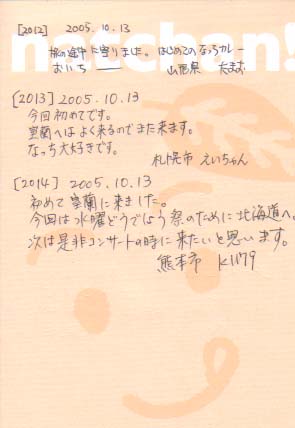 natchan!
[2012] 2005.10.13
旅の途中に寄りました。はじめてのなっちカレー
おいち ―
山形県 たまお
[2013] 2005.10.13
今回初めてです。
室蘭へは よく来るのでまた来ます。
なっち大好きです。
札幌市 えいちゃん
[2014] 2005.10.13
初めて室蘭に来ました。
今回は水曜どうでしょう祭のために北海道へ。
次は是非コンサートの時に来たいと思います。
熊本市